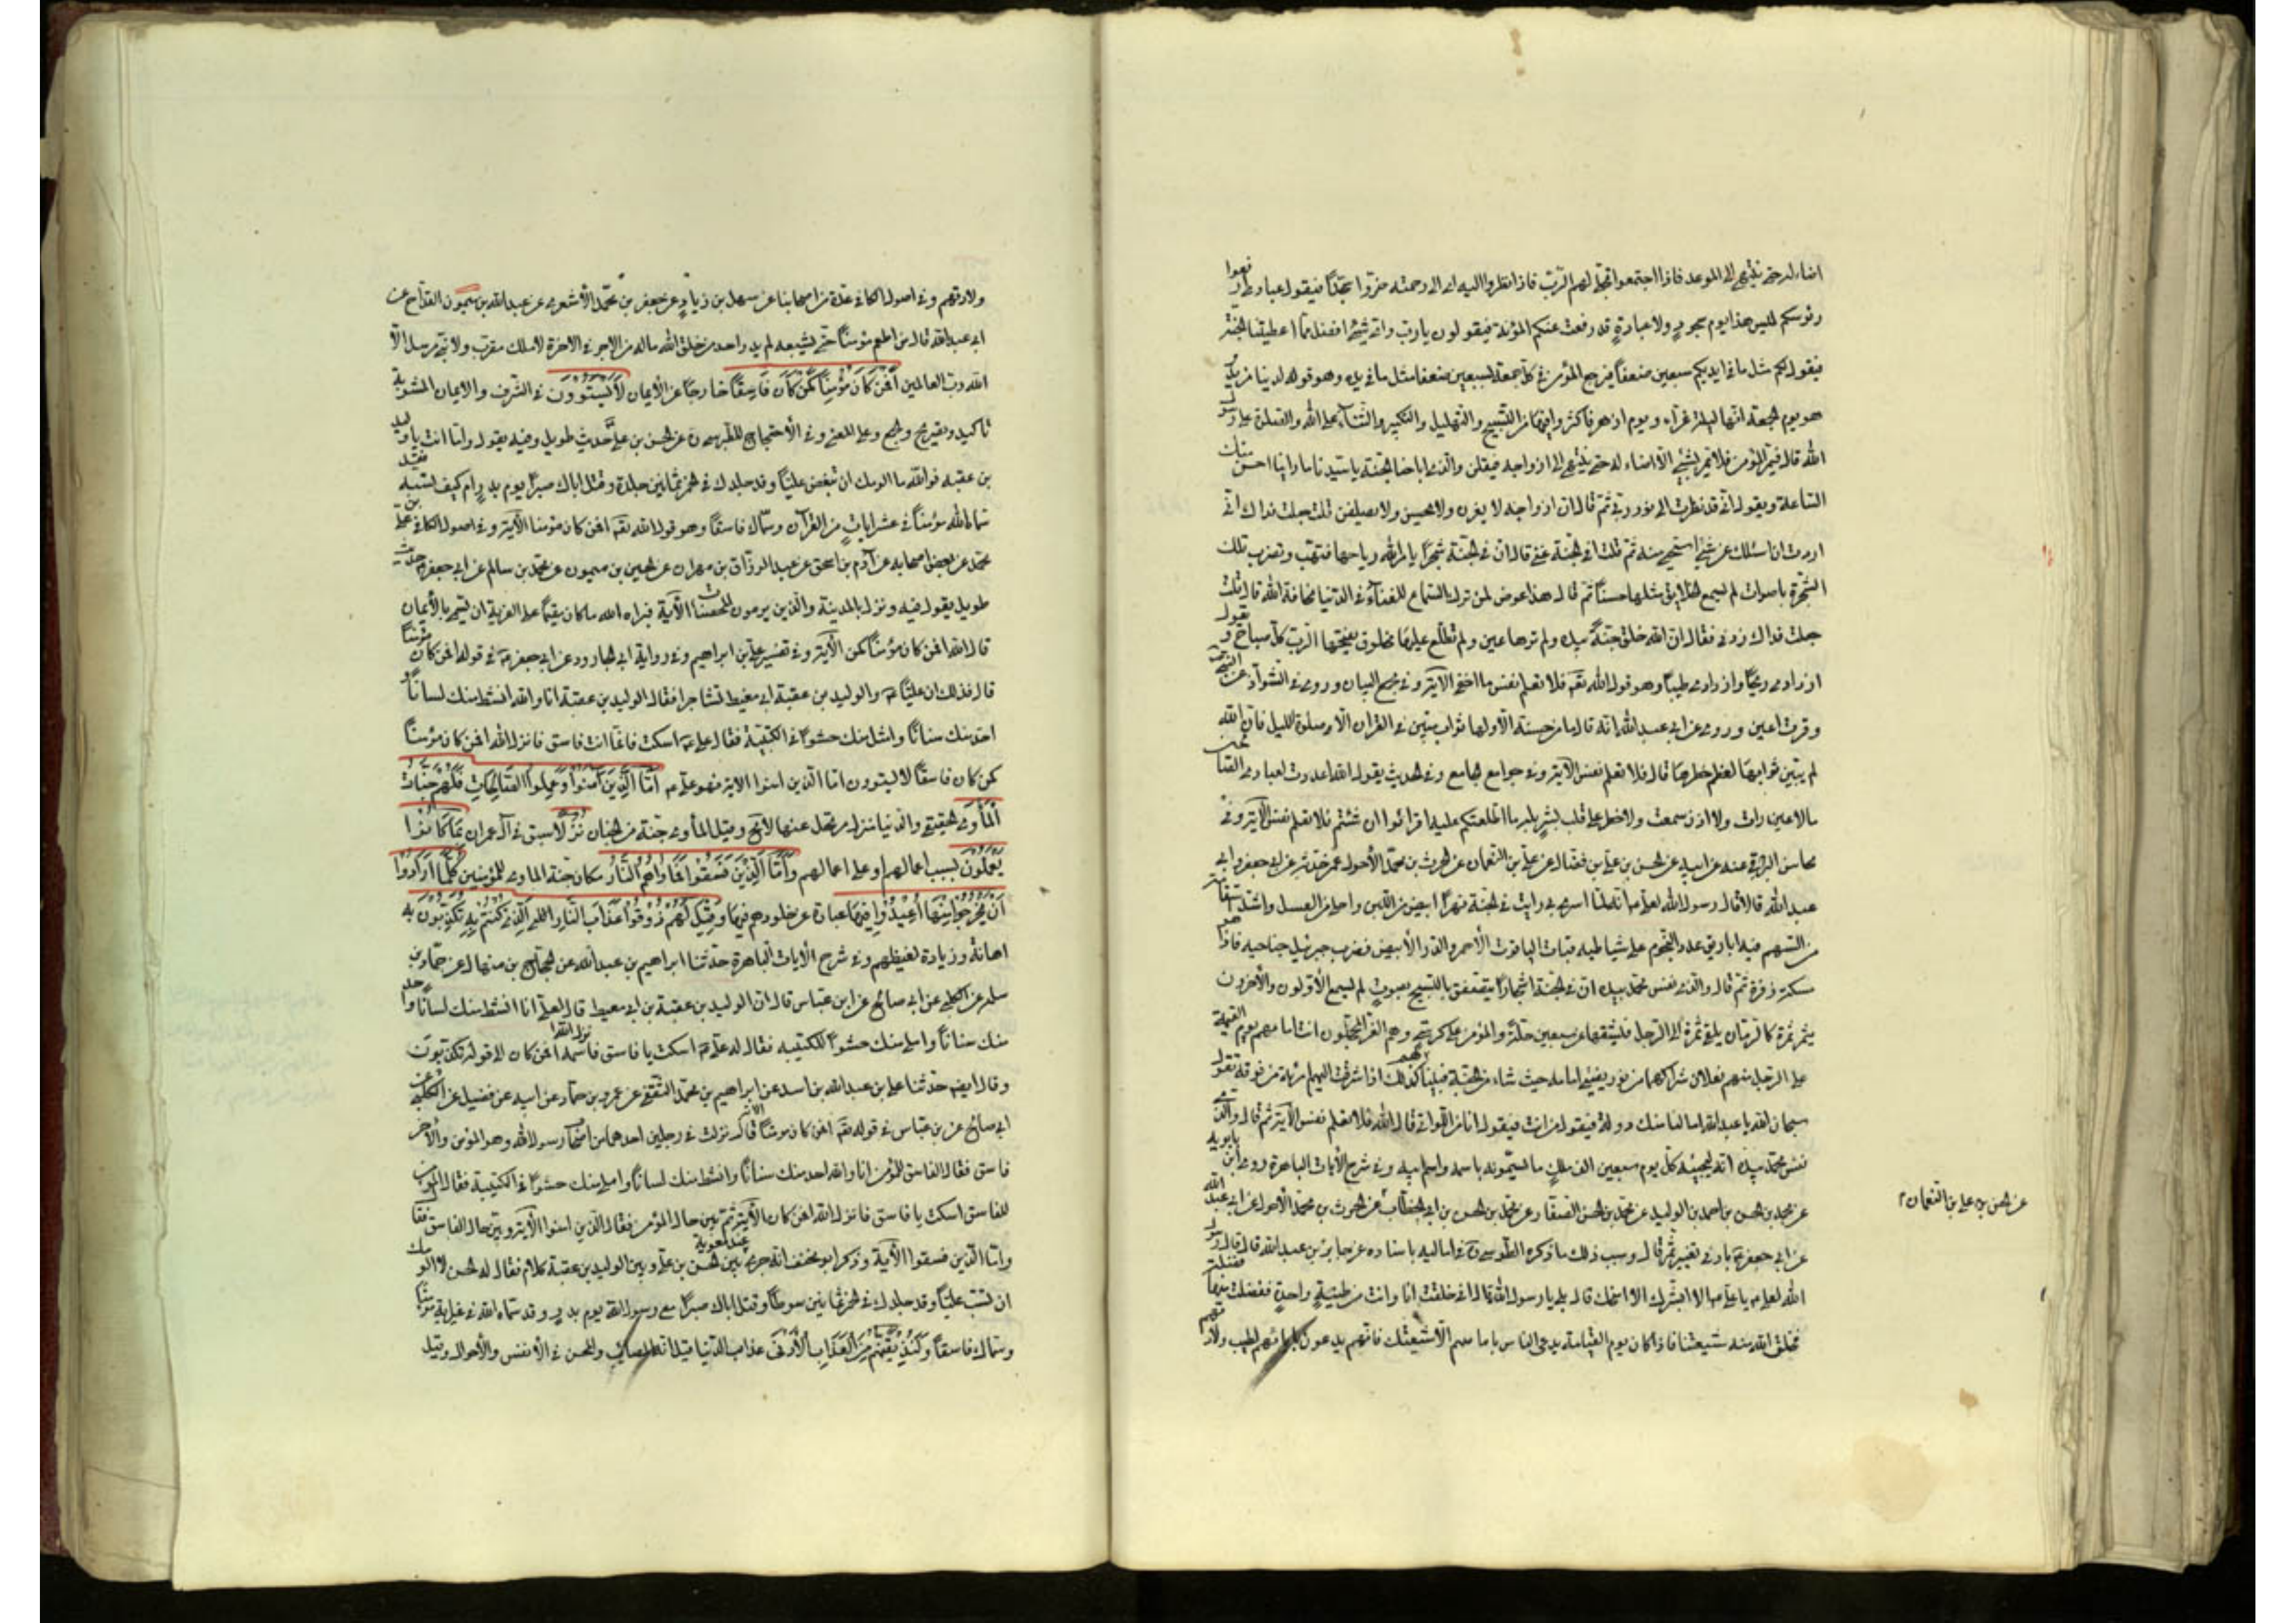 اضاء له حتى ينتهى الى الموعد فاذا اجتمعوا تجلى لهم الرب فاذا نظروا اليه اى الى رحمته خروا سجدا فيقول عبادى ارفعوا
رؤسكم ليس هذا يوم سجود ولا عبادة قد رفعت عنكم المؤنة فيقولون يا رب واى شئ افضل مما اعطيتنا الجنة
فيقول لكم مثل ما فى ايديكم سبعين ضعفا فيرجع المؤمن فى كل جمعة بسبعين ضعفا مثل ما فى يديه وهو قوله لدينا مزيد
هو يوم الجمعة انها ليلة غراء ويوم ازهر فاكثروا فيهما من التسبيح والتهليل والتكبير والثناء على الله والصلوة على رسول
الله قال فيمر المؤمن فلا يمر بشئ الا اضاء له حتى ينتهى الى ازواجه فيقلن والذى اباحنا الجنة يا سيدنا ما راينا احسن منك
الساعة ويقول انى قد نظرت الى نور ربى ثم قال ان ازواجه لا يغرن ولا يحضن ولا يصلفن قلت جعلت فداك انى
اردت ان اسئلك عن شئ استحيى منه ثم قلت افى الجنة غنى قال ان فى الجنة شجرا يامر الله رياحها فتهب وتضرب تلك
الشجرة باصوات لم يسمع الخلايق مثلها حسنا ثم قال هذا عوض لمن ترك السماع للغناء فى الدنيا مخافة الله قال قلت
جعلت فداك زدنى فقال ان الله خلق جنة بيده ولم ترها عين ولم تطلع عليها مخلوق يفتحها الرب كل صباح ويقول
ازدادى ريحا وازدادى طيبا وهو قول الله تعه فلا تعلم نفس ما اخفى الآية وفى مجمع البيان وروى فى الشواذ عن النبى
وقرت اعين وروى عن ابى عبد الله انه قال ما من حسنة الا ولها ثواب مبين فى القران الا صلوة الليل فان الله
لم يبين ثوابها لعظم خطرها قال فلا تعلم نفس الآية وفى جوامع الجامع وفى الحديث يقول الله اعددت لعبادى الصالحين
ما لا عين رات ولا اذن سمعت ولا خطر على قلب بشر بله ما اطلعتكم عليه اقرائوا ان شئتم فلا تعلم نفس الآية وفى
محاسن البرقى عنه عن ابيه عن الحسن بن على بن فضال عن على بن النعمان عن الحرث بن محمد الاحول عمن حدثه عن ابى جعفر وابى
عبد الله قالا قال رسول الله لعلى انه لما اسرى بى رايت فى الجنة نهرا ابيض من اللبن واحلى من العسل واشد استقامة
من السهم فيه اباريق عدد النجوم على شاطيه قباب الياقوت الاحمر والدر الابيض فضرب جبرئيل جناحيه فاذا هو
مسكة ذفرة ثم قال والذى نفس محمد بيده ان فى الجنة اشجارا يتصفقن بالتسبيح بصوت لم يسمع الاولون والآخرون
يثمر ثمرة كالرمان يلقى ثمرة الى الرجل فيشقها عن سبعين حلة والمؤمن على كرسى وهم الغر المحجلون انت امامهم يوم القيمة
على الرجل منهم نعلان شراكهما من نور يضيئ امامه حيث شاء من الجنة فبينا هو كذلك اذا اشرفت اليهم امراة من فوقه تقول
سبحان الله يا عبد الله اما لنا منك دولة فيقول من انت فيقول انا من اللواتى قال الله فلا تعلم نفس الآية ثم قال والذى
نفس محمد بيده انه ليجيئه كل يوم سبعين الف ملك ما يسمونه باسمه واسم ابيه وفى شرح الآيات الباهرة روى ابن بابويه
عن محمد بن الحسن بن احمد بن الوليد عن محمد بن الحسن الصفار عن محمد بن الحسين بن ابى الخطاب عن الحرث بن محمد الاحول عن ابى عبد الله
عن الحسن بن على بن النعمان
عن ابى جعفر بادنى تغيير ثم قال وسبب ذلك ما ذكره الطوسى فى اماليه باسناده عن جابر بن عبد الله قال قال رسول
الله لعلى يا على الا ابشرك الا امنحك قال بلى يا رسول الله قال انى خلقت انا وانت من طينة واحدة ففضلت منها فضلة
فخلق الله منه شيعتنا فاذا كان يوم القيامة يدعى الناس باسمائهم الا شيعتك فانهم يدعون بآبائهم لطيب ولادتهم
ولادتهم وفى اصول الكافى عدة من اصحابنا عن سهل بن زياد عن جعفر بن محمد الاشعرى عن عبد الله بن ميمون القداح عن
ابى عبد الله قال من اطعم مؤمنا حتى يشبعه لم يدر احد من خلق الله ماله من الاجر فى الاخرة لا ملك مقرب ولا نبى مرسل الا
الله رب العالمين افمن كان مؤمنا كمن كان فاسقا خارجا عن الايمان لا يستوون فى الشرف والايمان المثوبة
تاكيد وتصريح وجمع وعلى المعنى وفى الاحتجاج للطبرسى عن الحسن بن على حديث طويل وفيه يقول واما انت يا وليد
بن عقبة فوالله ما الومك ان تبغض عليا وقد جلدك فى الخمر ثمانين جلدة وقتل اباك صبرا يوم بدر ام كيف تسبه فقد
سماه الله مؤمنا فى عشر ايات من القرآن وسماك فاسقا وهو قول الله تعه افمن كان مؤمنا الآية وفى اصول الكافى على بن
محمد عن بعض اصحابه عن آدم بن اسحق عن عبد الرزاق بن مهران عن الحسين بن ميمون عن محمد بن سالم عن ابى جعفر حديث
طويل يقول فيه ونزل بالمدينة والذين يرمون المحصنات الآية فبراه الله ما كان مقيما على الفرية ان يسمى بالايمان
قال الله افمن كان مؤمنا كمن الآية وفى تفسير على بن ابراهيم وفى رواية ابى الجارود عن ابى جعفر فى قوله افمن كان مؤمنا
قال فذلك ان عليا والوليد بن عقبة ابى معيط تشاجرا فقال الوليد بن عقبة انا والله ابسط منك لسانا و
احد منك سنانا وامثل منك حشوا فى الكتيبة فقال على اسكت فانما انت فاسق فانزل الله افمن كان مؤمنا
كمن كان فاسقا لا يستوون اما الذين امنوا الاية فهو على اما الذين آمنوا وعملوا الصالحات فلهم جنات
المأوى الحقيقى والدنيا منزل مرتحل عنها لا مح وقيل المأوى جنة من الجنان نزلا سبق فى آل عمران بما كانوا
يعملون بسبب اعمالهم او على اعمالهم واما الذين فسقوا فماواهم النار مكان جنة الماوى للمؤمنين كلما ارادوا
ان يخرجوا منها اعيدوا فيها عبارة عن خلودهم فيها وقيل لهم ذوقوا عذاب النار الذى كنتم به تكذبون به
اهانة وزيادة لغيظهم وفى شرح الآيات الباهرة حدثنا ابراهيم بن عبد الله عن الحجاج بن منهال عن حماد بن
سلمه عن الكلبى عن ابى صالح عن ابن عباس قال ان الوليد بن عقبة بن ابى معيط قال لعلى انا ابسط منك لسانا واحد
منك سنانا واملى منك حشوا للكتيبه فقال له على اسكت يا فاسق فانزل الله افمن كان الى قوله تكذبون
وقال ايضا حدثنا على بن عبد الله بن اسد عن ابراهيم بن محمد الثقفى عن عمرو بن حماد عن ابيه عن فضيل عن الكلبى عن
ابى صالح عن ابن عباس فى قوله تعه افمن كان مؤمنا الآية قال نزلت فى رجلين احدهما من اصحاب رسول الله وهو المؤمن والآخر
فاسق فقال الفاسق للمؤمن انا والله احد منك سنانا وابسط منك لسانا واملى منك حشوا فى الكتيبة فقال المؤمن
للفاسق اسكت يا فاسق فانزل الله افمن كان الآية ثم بين حال المؤمن فقال اما الذين امنوا الآية وبين حال الفاسق فقال
واما الذين فسقوا الآية وذكر ابو مخنف انه جرى عند معوية بين الحسن بن على وبين الوليد بن عقبة كلام فقال له الحسن لا الومك
ان تسب عليا وقد جلدك فى الخمر ثمانين سوطا وقتل اباك صبرا مع رسول الله يوم بدر وقد سماه الله فى غير اية مؤمنا
وسماك فاسقا ولنذيقنهم من العذاب الادنى عذاب الدنيا قيل انه المصائب والمحن فى الانفس والاموال وقيل